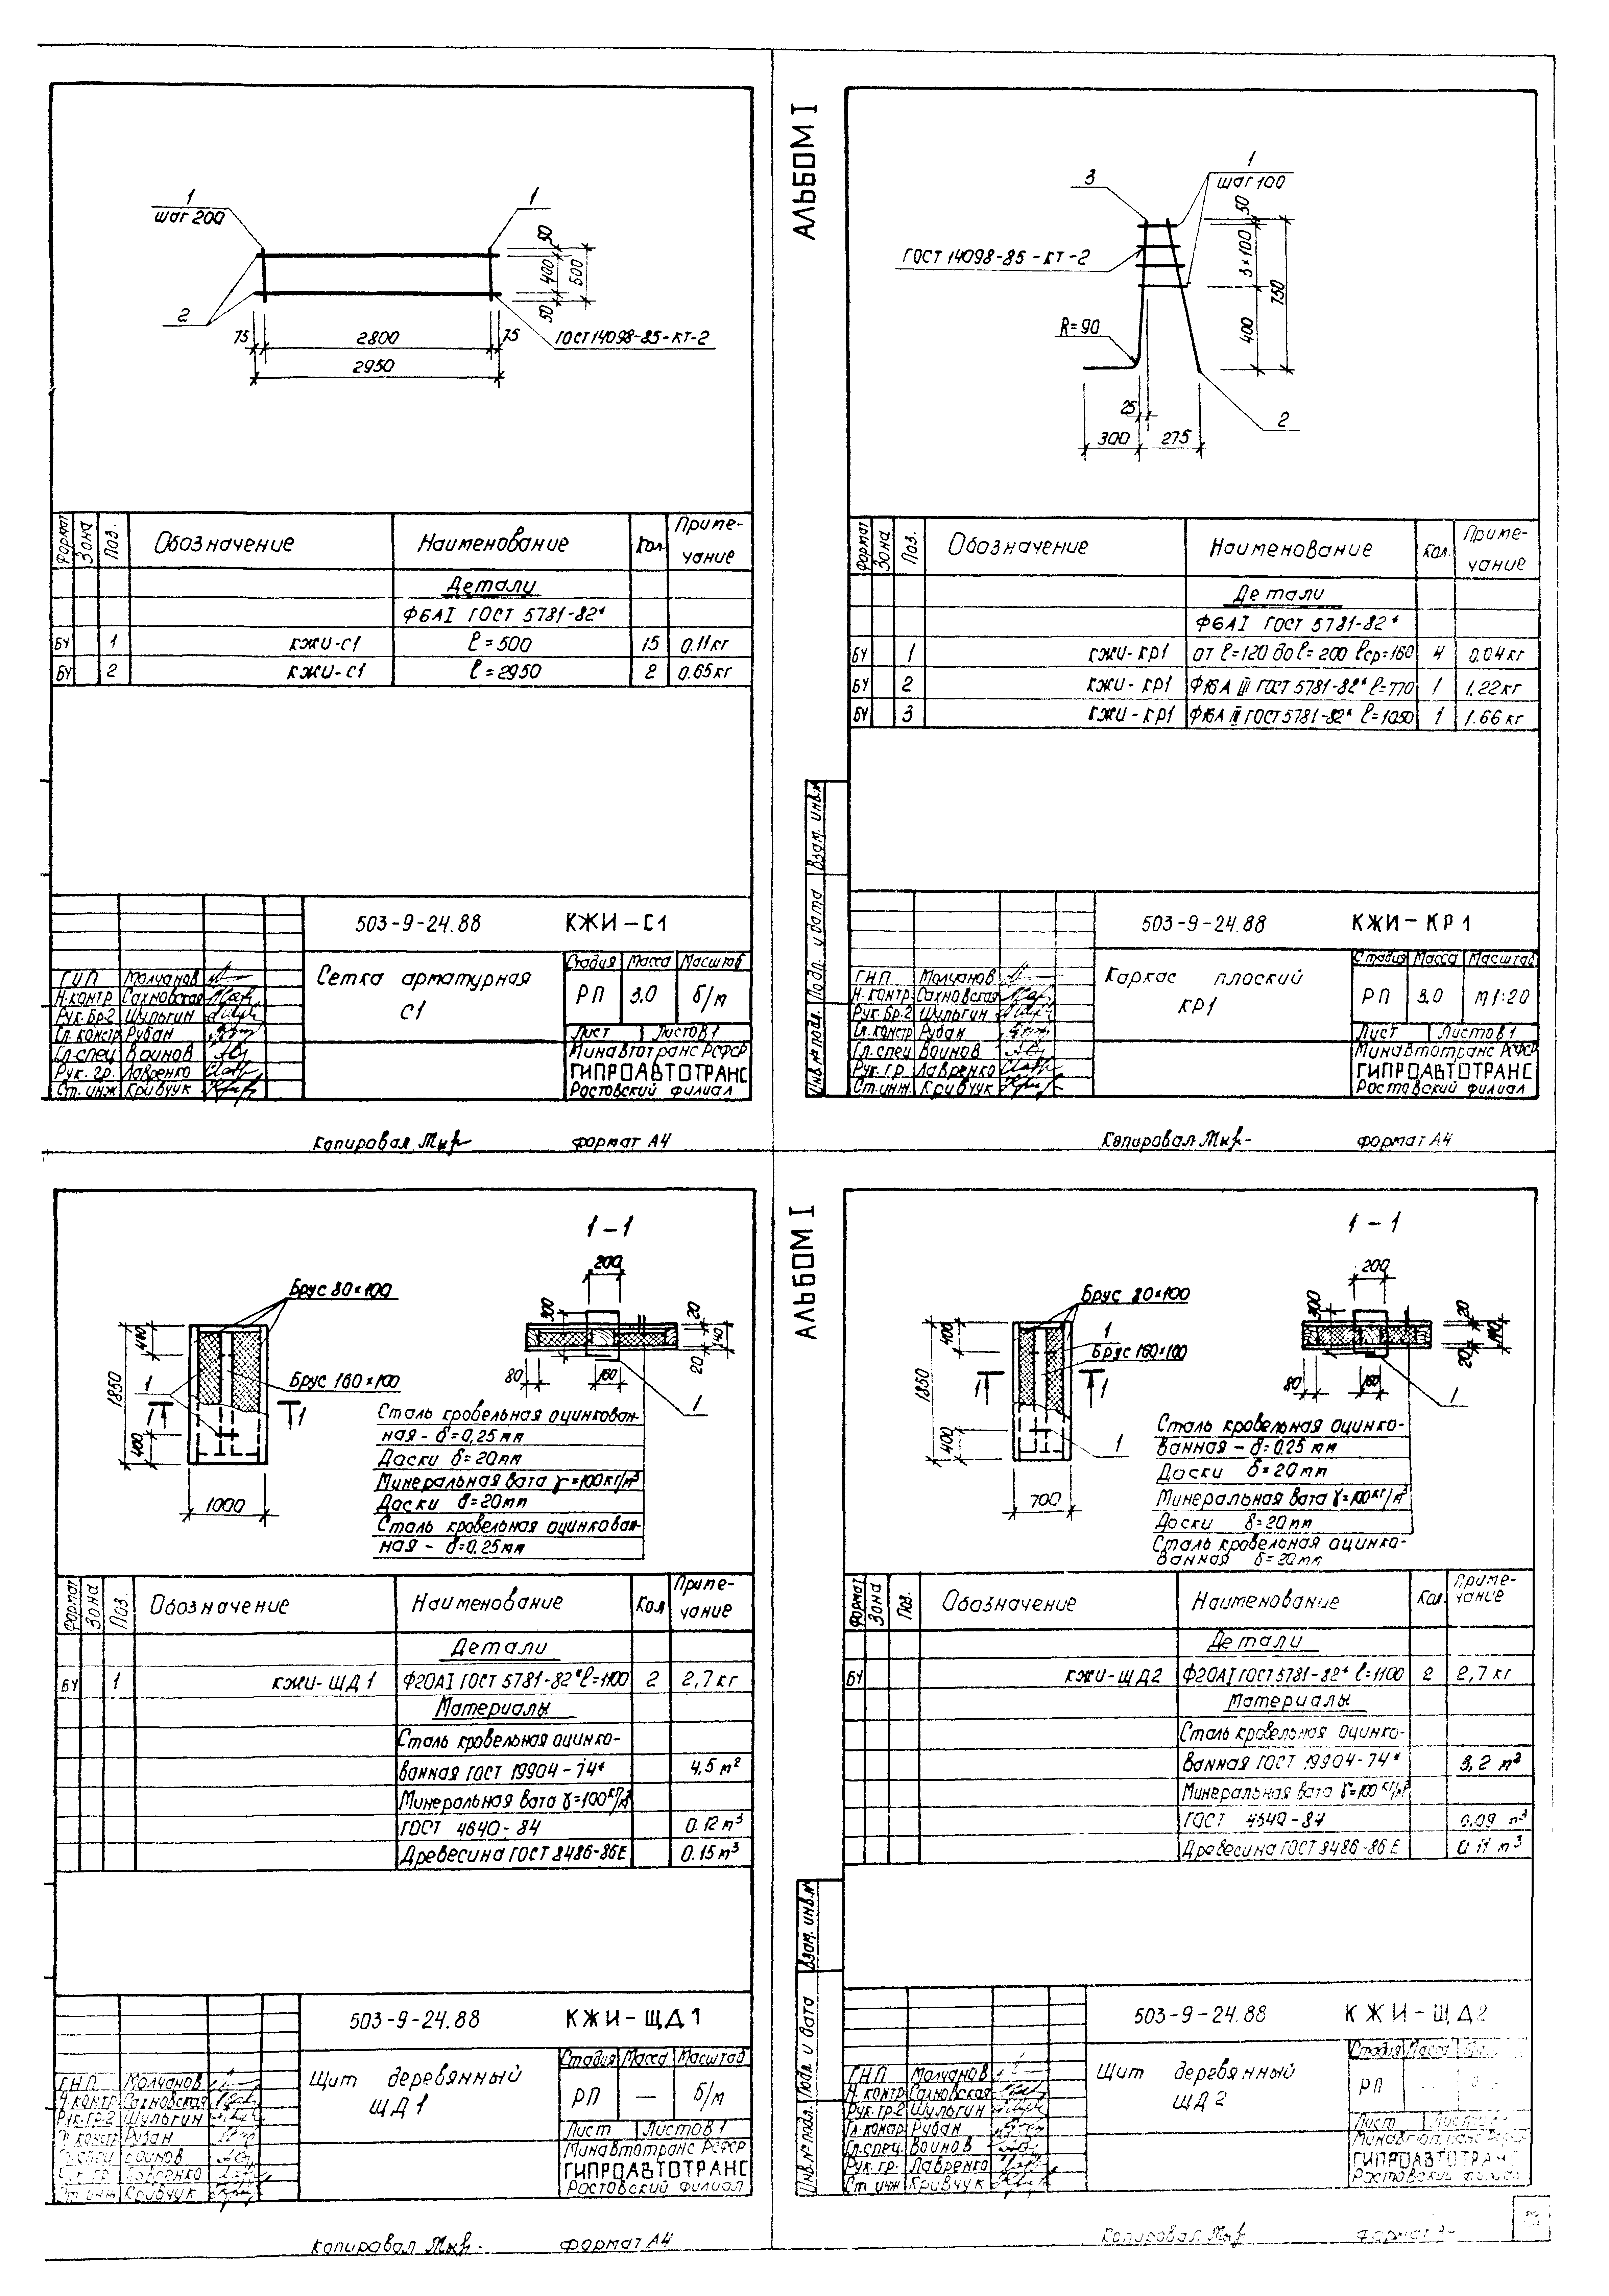 1
шаг 200
1
2
50
400
50
500
75
2800
75
2950
ГОСТ 14098-85-КТ-2
Формат
Зона
Поз.
Обозначение
Наименование
Кол.
Приме-
чание
Детали
Ф6АI ГОСТ 5781-82*
БЧ 1 КЖИ-С1 ℓ=500 15 0.11кг
БЧ 2 КЖИ-С1 ℓ=2950 2 0.65кг
503-9-24.88 КЖИ-С1
Сетка арматурная
С1
Стадия Масса Масштаб
РП 3.0 б/м
Лист Листов 1
Минавтотранс РСФСР
ГИПРОАВТОТРАНС
Ростовский филиал
ГИП Молчанов
Н.контр Сахновская
Рук.бр-2 Шульгин
Гл.констр Рубан
Гл.спец Воинов
Рук. гр. Лавренко
Ст.инж Кривчук
Копировал
формат А4
АЛЬБОМ I
3
1
шаг 100
ГОСТ 14098-85-КТ-2
R=90
50
3×100
400
750
25
300
275
2
Формат
Зона
Поз.
Обозначение
Наименование
Кол.
Приме-
чание
Детали
Ф6АI ГОСТ 5781-82*
БЧ 1 КЖИ-КР1 от ℓ=120 до ℓ=200 ℓср=160 4 0.04кг
БЧ 2 КЖИ-КР1 Ф16А III ГОСТ 5781-82* ℓ=770 1 1.22кг
БЧ 3 КЖИ-КР1 Ф16А III ГОСТ 5781-82* ℓ=1050 1 1.66 кг
Инв.№ подл. Подп. и дата Взам. инв.№
503-9-24.88 КЖИ-КР1
Каркас плоский
КР1
Стадия Масса Масштаб
РП 3.0 М1:20
Лист Листов 1
Минавтотранс РСФСР
ГИПРОАВТОТРАНС
Ростовский филиал
ГИП Молчанов
Н.контр Сахновская
Рук.бр-2 Шульгин
Гл.констр Рубан
Гл.спец Воинов
Рук.гр Лавренко
Ст.инж. Кривчук
Копировал
формат А4
1-1
Брус 80×100
Брус 160×100
1
1
1
400
1850
400
1000
200
300
20
140
20
80
160
1
Сталь кровельная оцинкован-
ная - δ=0,25мм
Доски δ=20мм
Минеральная вата γ=100кг/м³
Доски δ=20мм
Сталь кровельная оцинкован-
ная - δ=0.25мм
Формат
Зона
Поз.
Обозначение
Наименование
Кол
Приме-
чание
Детали
БЧ 1 КЖИ-ЩД1 Ф20АI ГОСТ 5781-82* ℓ=1100 2 2,7кг
Материалы
Сталь кровельная оцинко-
ванная ГОСТ 19904-74* 4,5 м²
Минеральная вата γ=100кг/м³
ГОСТ 4640-84 0.12 м³
Древесина ГОСТ 8486-86Е 0.15м³
503-9-24.88 КЖИ-ЩД1
Щит деревянный
ЩД1
Стадия Масса Масштаб
РП — б/м
Лист Листов 1
Минавтотранс РСФСР
ГИПРОАВТОТРАНС
Ростовский филиал
ГНП Молчанов
Н.контр Сахновская
Рук.гр-2 Шульгин
Гл.констр Рубан
Гл.спец Воинов
Рук. гр. Лавренко
Ст.инж Кривчук
Копировал
формат А4
АЛЬБОМ I
1-1
Брус 80×100
1
Брус 160×100
1
1
400
1850
400
1
700
200
300
20
140
20
80
160
1
Сталь кровельная оцинко-
ванная - δ=0.25 мм
Доски δ=20мм
Минеральная вата γ=100кг/м³
Доски δ=20мм
Сталь кровельная оцинко-
ванная δ=20мм
Формат
Зона
Поз.
Обозначение
Наименование
Кол.
Приме-
чание
Детали
БЧ КЖИ-ЩД2 Ф20АI ГОСТ 5781-82* ℓ=1100 2 2,7 кг
Материалы
Сталь кровельная оцинко-
ванная ГОСТ 19904-74* 3,2 м²
Минеральная вата γ=100кг/м³
ГОСТ 4640-84 0,09 м³
Древесина ГОСТ 8486-86Е 0.11 м³
Инв.№ подл. Подп. и дата Взам. инв.№
503-9-24.88 КЖИ-ЩД2
Щит деревянный
ЩД2
Стадия Масса
РП
Лист Листов
Минавтотранс РСФСР
ГИПРОАВТОТРАНС
Ростовский филиал
ГНП Молчанов
Н.контр Сахновская
Рук.гр-2 Шульгин
Гл.констр Рубан
Гл.спец. Воинов
Рук.гр. Лавренко
Ст инж Кривчук
Копировал
формат